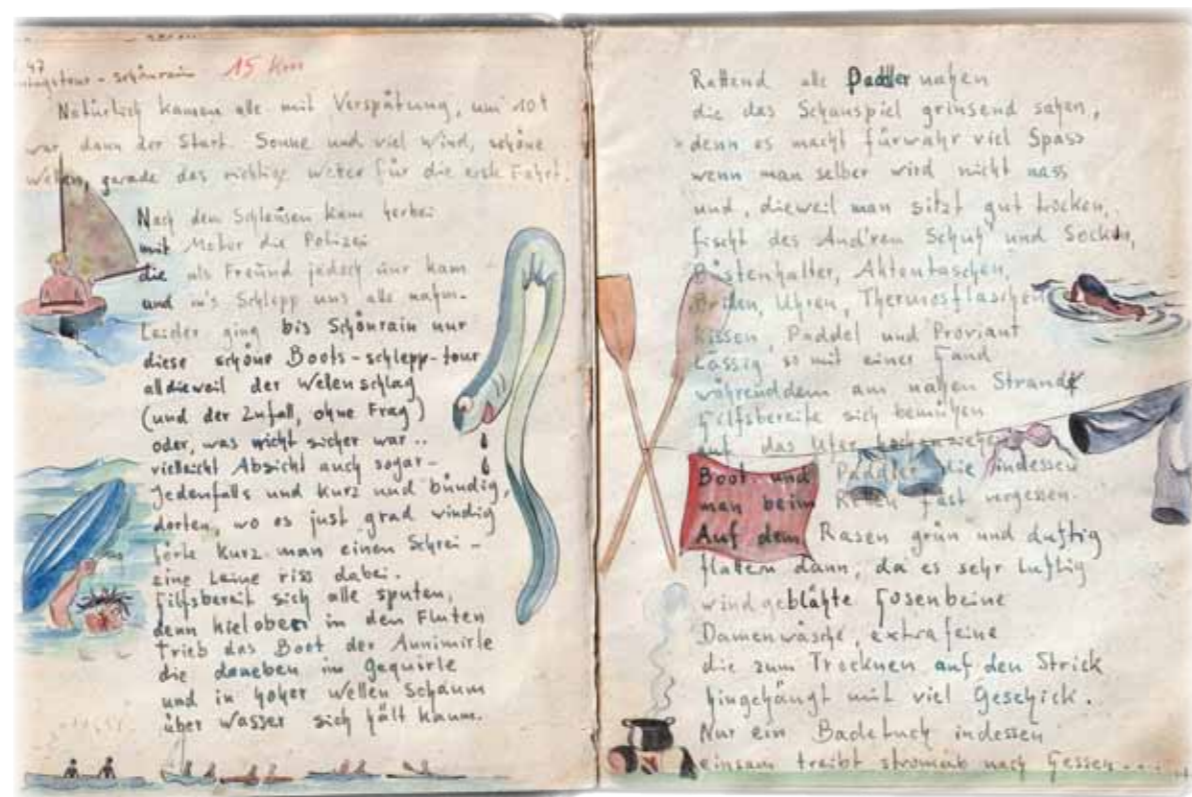 47
- Schönrain 15 Km
Natürlich kamen alle mit Verspätung, um 10
war dann der Start. Sonne und viel Wind, schöne
Wellen, gerade das richtige Wetter für die erste Fahrt.
Nach den Schleusen kam herbei
mit Motor die Polizei
die als Freund jedoch nur kam
und in's Schlepp uns alle nahm.
Leider ging bis Schönrain nur
diese schöne Boots-schlepp-tour
alldieweil der Wellenschlag
(und der Zufall, ohne Frag)
oder, was nicht sicher war..
vielleicht Absicht auch sogar-
Jedenfalls und kurz und bündig,
dorten, wo es just grad windig
hörte kurz man einen Schrei -
eine Leine riss dabei.
Hilfsbereit sich alle sputen,
denn kieloben in den Fluten
trieb das Boot der Annimirle
die daneben im Gequirle
und in hoher Wellen Schaum
über Wasser sich hält kaum.
Rettend alle Paddler nahen
die das Schauspiel grinsend sahen,
denn es macht fürwahr viel Spass
wenn man selber wird nicht nass
und, dieweil man sitzt gut trocken,
fischt des And'ren Schuh und Socken,
Büstenhalter, Aktentaschen,
Uhren, Thermosflaschen
Kissen, Paddel und Proviant
Lässig so mit einer Hand
währenddem am nahen Strande
Hilfsbereite sich bemühen
auf das Ufer hochzuziehen
Boot und Paddler die indessen
man beim Retten fast vergessen.
Auf dem Rasen grün und duftig
flattern dann, da es sehr luftig
windgeblähte Hosenbeine
Damenwäsche, extrafeine
die zum Trocknen auf den Strick
hingehängt mit viel Geschick.
Nur ein Badetuch indessen
einsam treibt stromab nach Hessen.....